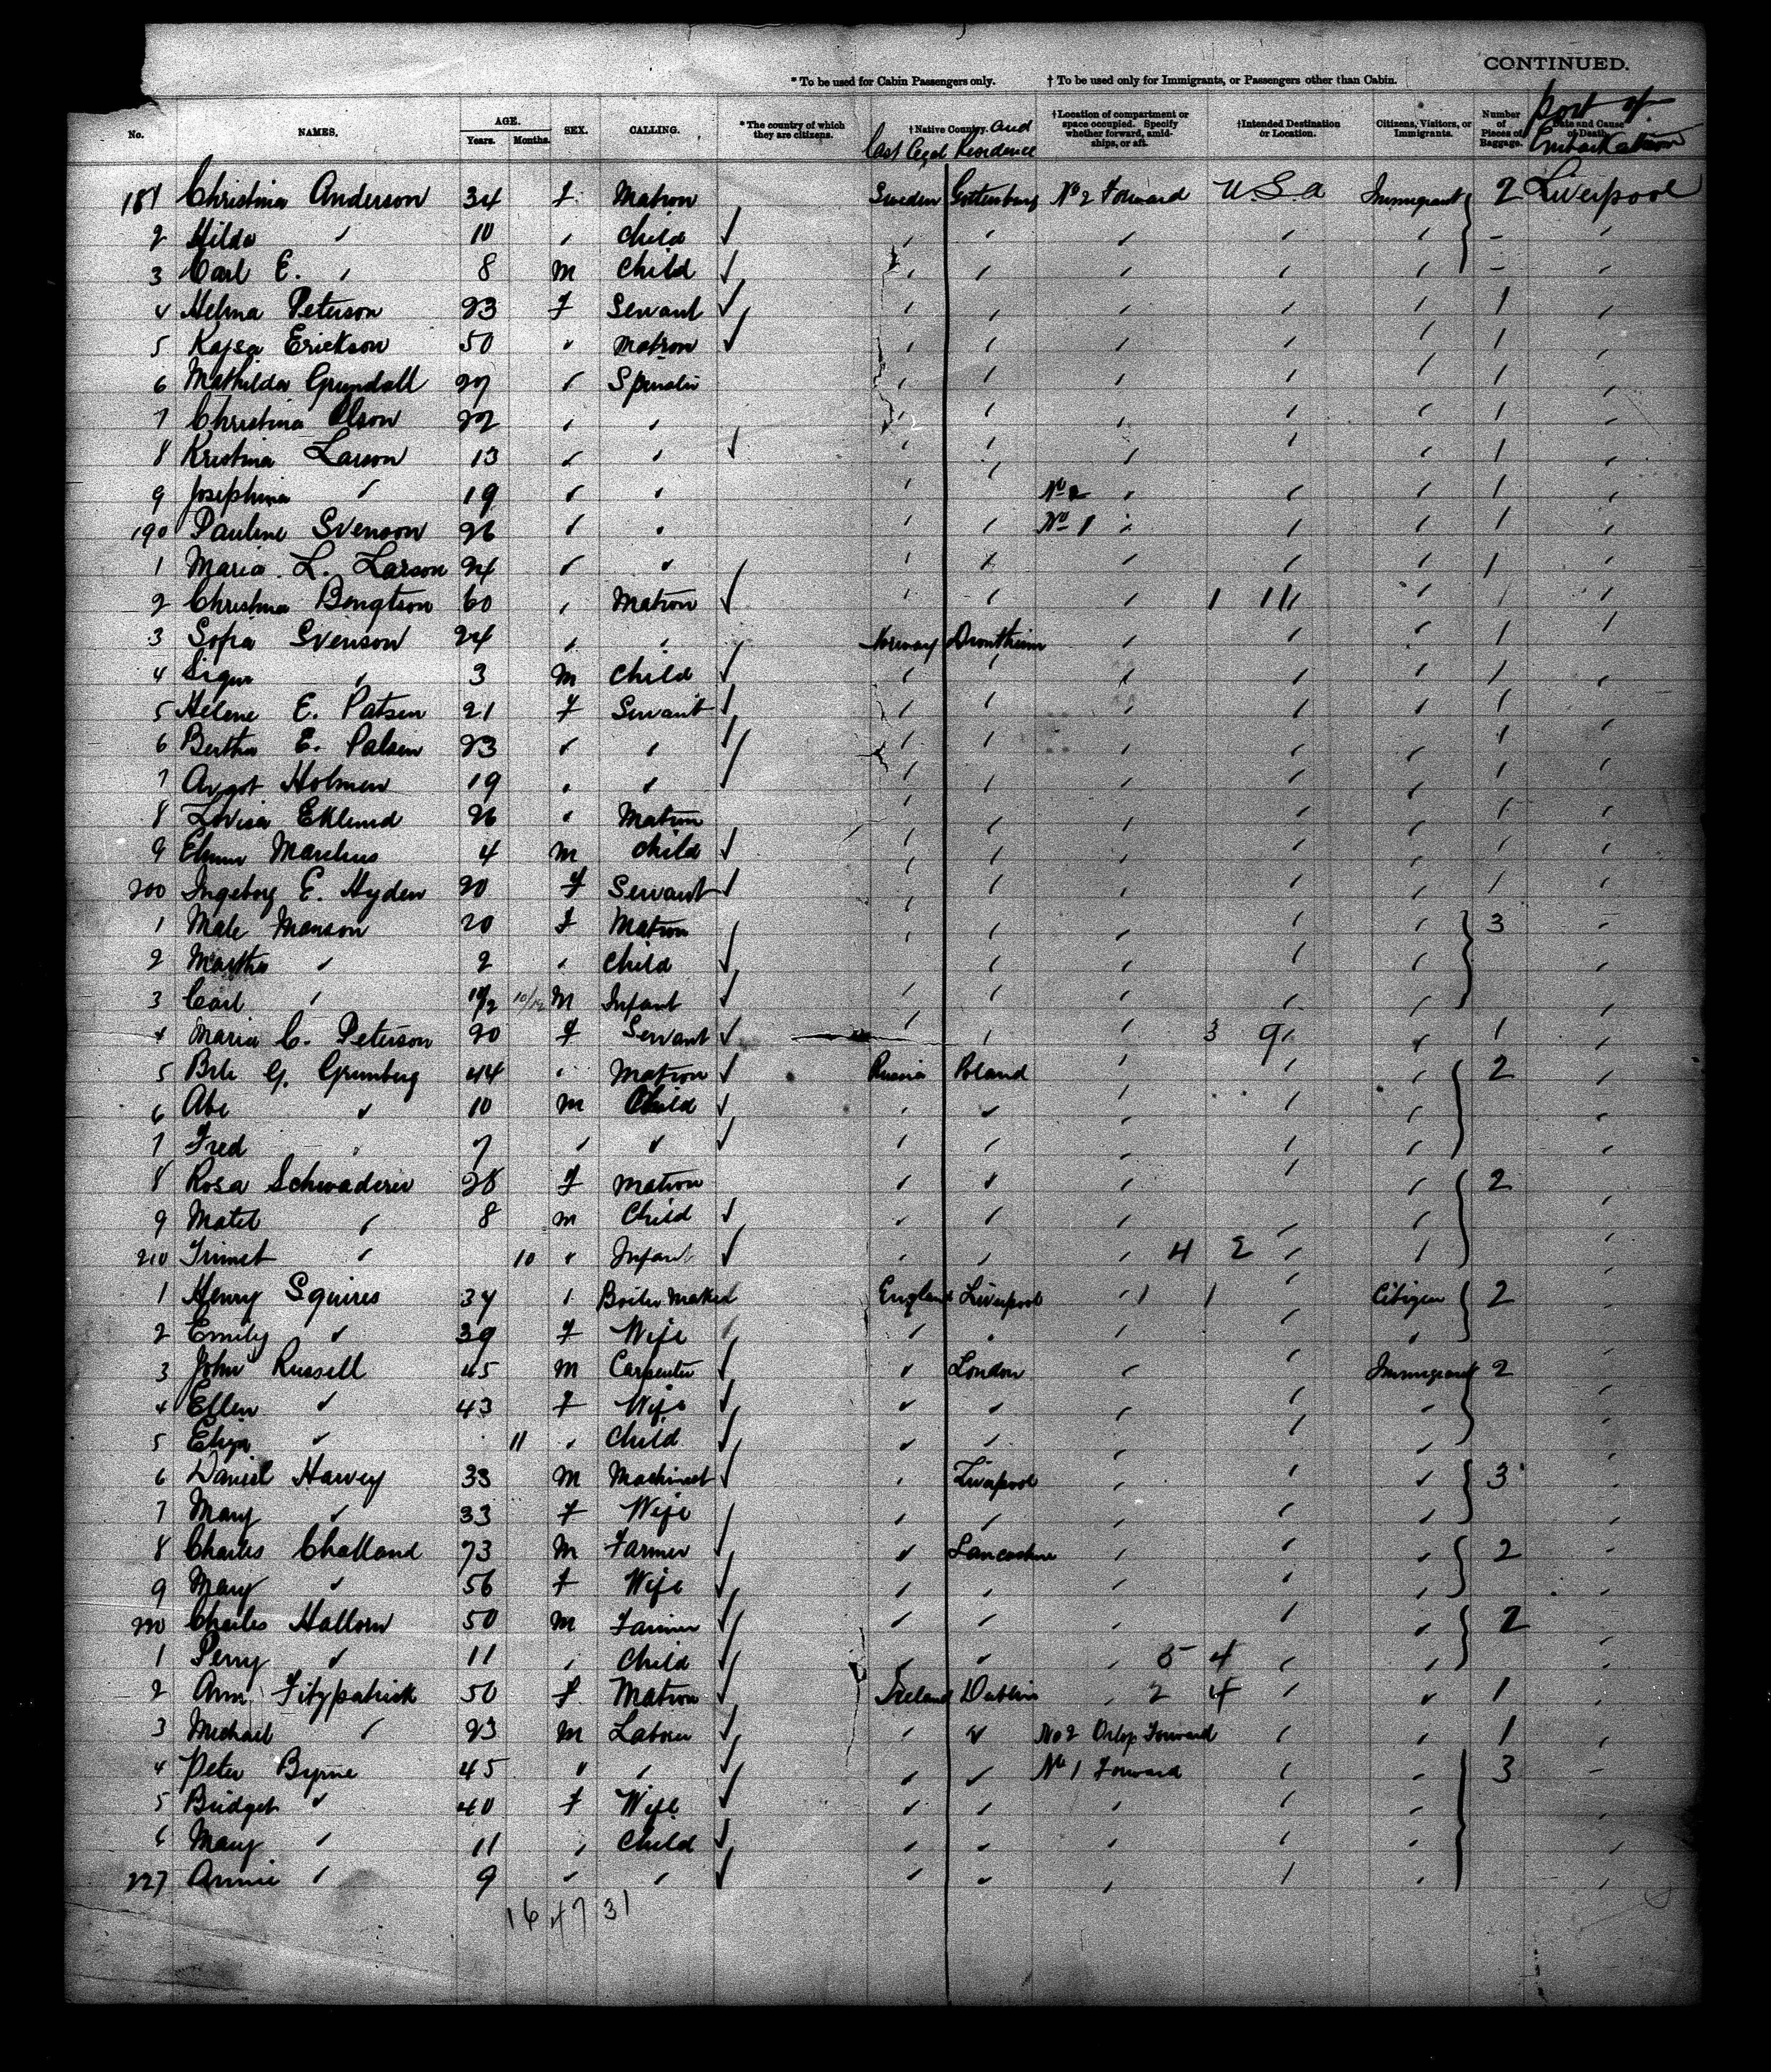 CONTINUED.
* To be used for Cabin Passengers only. † To be used only for Immigrants, or Passengers other than Cabin.
No. NAMES. AGE. Years. Months. SEX. CALLING. * The country of which they are citizens. † Native Country. and Last Legal Residence † Location of compartment or space occupied. Specify whether forward, amidships, or aft. † Intended Destination or Location. Citizens, Visitors, or Immigrants. Number of Pieces of Baggage. Date and Cause of Death. Port of Embarkation
181 Christina Anderson 34 f. Matron Sweden Gottenburg No 2 Forward U.S.A Immigrant 2 Liverpool
2 Hilda " 10 " Child ✓ " " " " " - "
3 Carl E. " 8 M Child ✓ " " " " " - "
4 Helma Peterson 23 f Servant ✓ " " " " " 1 "
5 Kajsa Erickson 50 " Matron ✓ " " " " " 1 "
6 Mathilda Grundall 27 " " " " " " 1 "
7 Christina Olson 22 " " " " " " " 1 "
8 Kristina Larson 13 " " ✓ " " " " " 1 "
9 Josephina " 19 " " " " No 2 " " " 1 "
190 Pauline Svenson 26 " " " " No 1 " " " 1 "
1 Maria L. Larson 24 " " " " " " " 1 "
2 Christina Bengtson 60 " Matron ✓ " " " 1 11 " " 1 "
3 Sofia Svenson 24 " " Norway Drontheim " " " 1 "
4 " 3 M Child ✓ " " " " " 1 "
5 Helene E. Patsen 21 f Servant ✓ " " " " " 1 "
6 Bertha E. Palsen 23 " " ✓ " " " " " 1 "
7 Holmen 19 " " ✓ " " " " " 1 "
8 Lovisa Eklund 26 " Matron " " " " " 1 "
9 4 M Child ✓ " " " " " 1 "
200 Ingeborg E. Hyden 20 f Servant ✓ " " " " " 1 "
1 Manson 20 f Matron " " " " " 3 "
2 Martha " 2 " Child ✓ " " " " " "
3 Carl " 10/12 M Infant ✓ " " " " " "
4 Maria C. Peterson 20 f Servant ✓ " " " 3 9 " " 1 "
5 G. Grunberg 44 " Matron ✓ Russia Poland " " " 2 "
6 Abe " 10 M Child ✓ " " " " " "
7 Fred " 7 " " ✓ " " " " " "
8 Rosa Schwaderer 28 f Matron " " " " " 2 "
9 " 8 M Child ✓ " " " " " "
210 " 10 " Infant ✓ " " " 4 2 " " "
1 Henry Squires 34 " Boiler Maker England Liverpool " 1 1 " Citizen 2 "
2 Emily " 39 f Wife " " " " " "
3 John Russell 45 M Carpenter ✓ " London " " Immigrant 2 "
4 Ellen " 43 f Wife ✓ " " " " " "
5 Eliza " 11 " Child ✓ " " " " " "
6 Daniel Harvey 33 M Machinest ✓ " Liverpool " " " 3 "
7 Mary " 33 f Wife " " " " " "
8 Charles Challand 73 M Farmer ✓ " Lancashire " " " 2 "
9 Mary " 56 f Wife ✓ " " " " " "
220 Charles Hallom 50 M Farmer ✓ " " " " " 2 "
1 Perry " 11 " Child ✓ " " " 5 4 " " "
2 Ann Fitzpatrick 50 f Matron ✓ Ireland Dublin " 2 4 " " 1 "
3 Michael " 23 M Laborer ✓ " " No 2 Orlop Forward " " 1 "
4 Peter Byrne 45 " " ✓ " " No 1 Forward " " 3 "
5 Bridget " 40 f Wife ✓ " " " " " "
6 Mary " 11 " Child ✓ " " " " " "
227 Annie " 9 " " ✓ " " " " " "
16 47 31